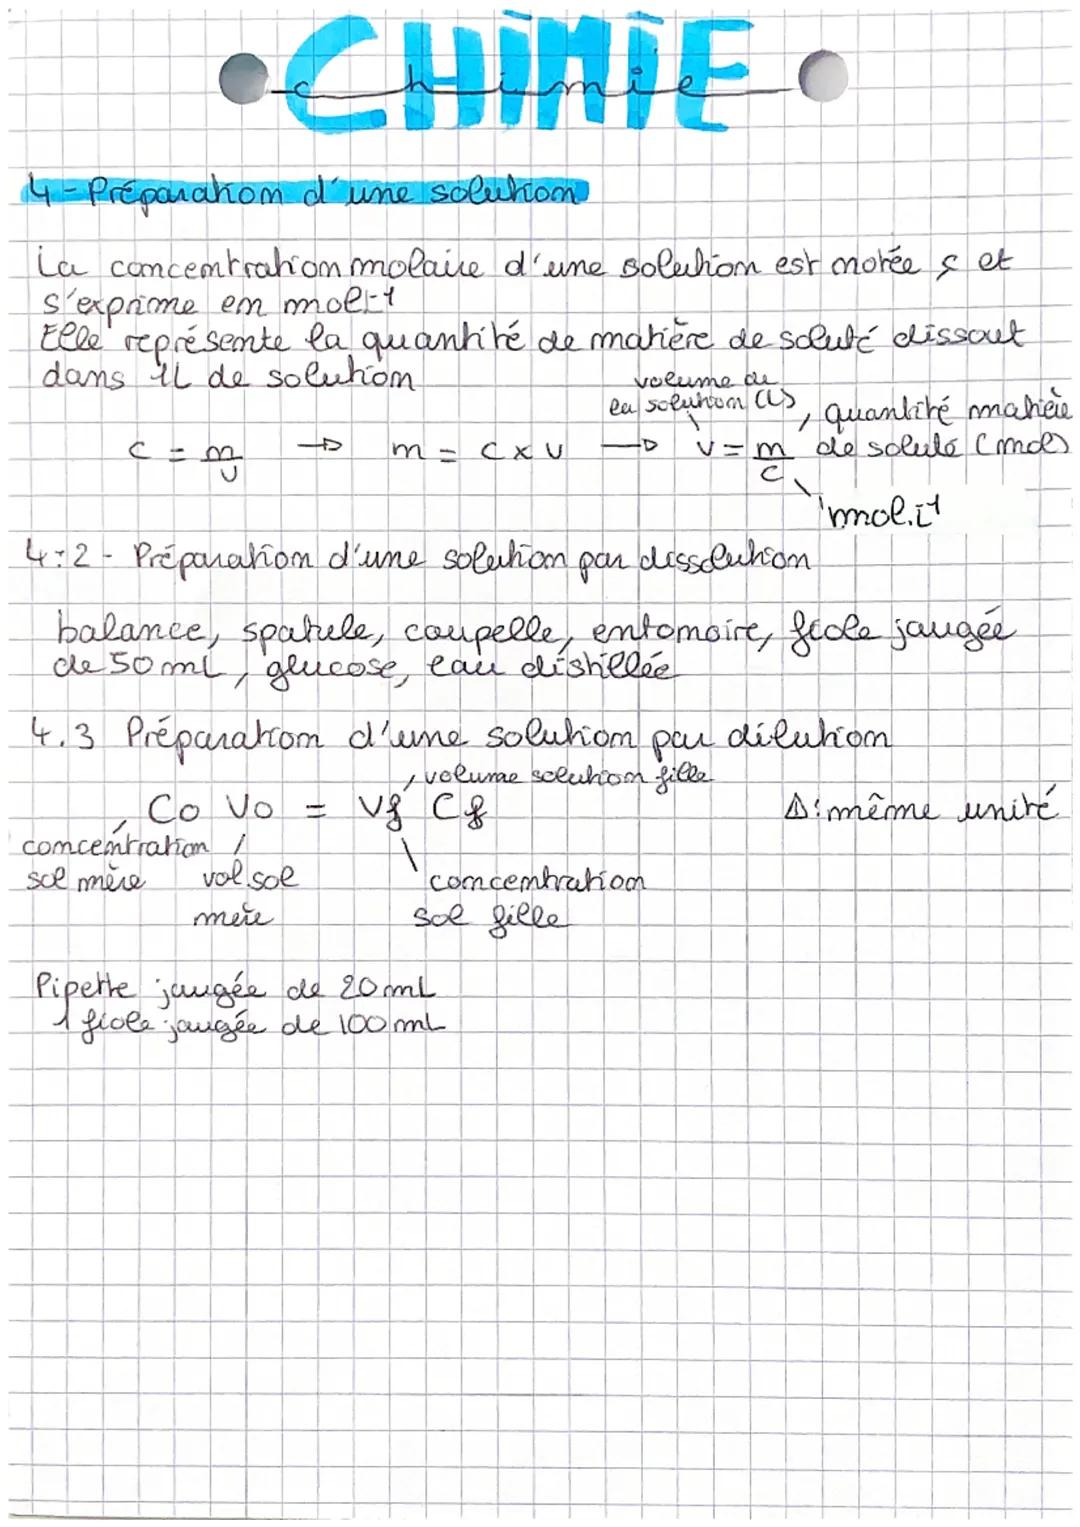 CHIMIE
chimie
4-Préparation d'une solution
La concentration molaire d'une solution est notée c et
s'exprime en mol.L-1
Elle représente la quantité de matière de soluté dissout
dans 1L de solution
volume de
la solution (L)
quantité matière
c = n/v → n = c x v → v = n/c de soluté (mol)
mol.L-1
4.2 - Préparation d'une solution par dissolution
balance, spatule, coupelle, entonnoire, fiole jaugée
de 50 mL, glucose, eau distillée
4.3 Préparation d'une solution par dilution
volume solution fille
Co Vo = Vf Cf ⚠: même unité
concentration
sol mère vol.sol concentration
mère sol fille
Pipette jaugée de 20 mL
1 fiole jaugée de 100 mL